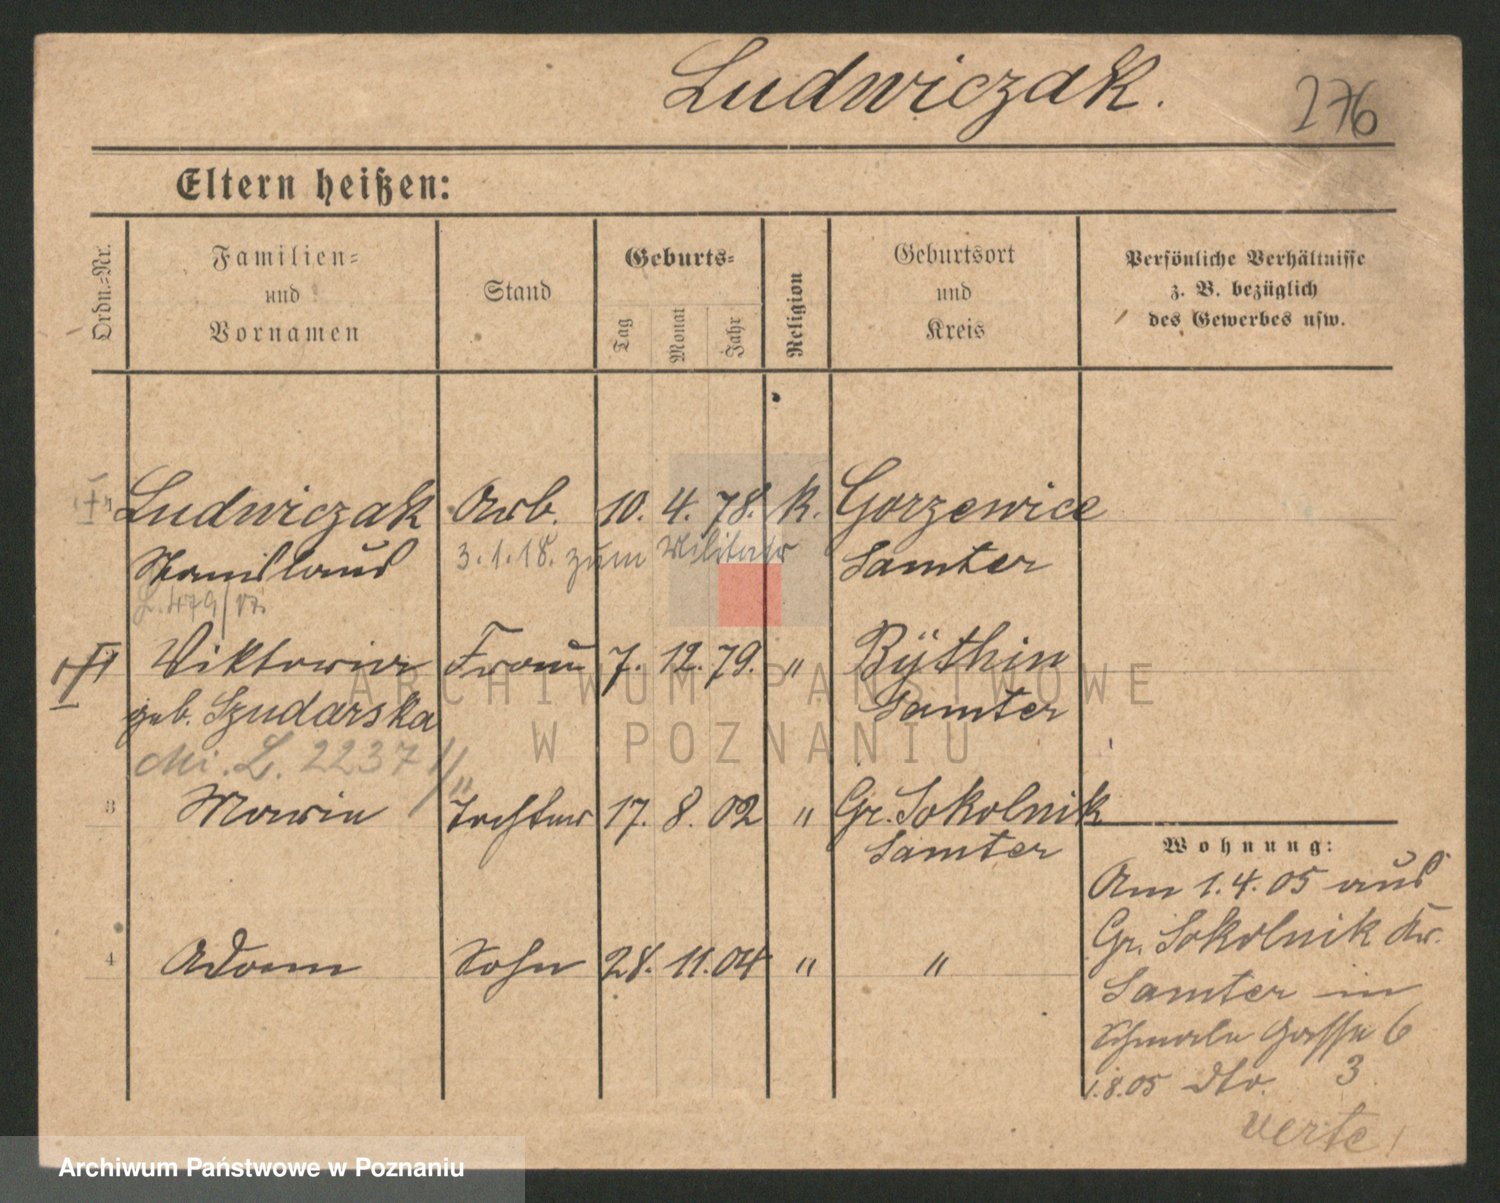 Ludwiczak.
276
Eltern heißen:
Ordn.-Nr.
Familien-
und
Vornamen
Stand
Geburts-
Tag
Monat
Jahr
Religion
Geburtsort
und
Kreis
Persönliche Verhältnisse
z. B. bezüglich
des Gewerbes usw.
Ludwiczak Arb. 10. 4. 78. k. Gorzewice
Stanislaus 3.1.18. zum Militär Samter
Viktoria Frau 7. 12. 79. " Bythin
geb. Szudarska Samter
L. 2237
3 Marie Tochter 17. 8. 02 " Gr. Sokolnik
Samter
4 Adam Sohn 28. 11. 04 " "
Wohnung:
Am 1.4.05 aus
Gr. Sokolnik Kr.
Samter in
Schmale Gasse 6
1.8.05 dto. 3
verte!
ARCHIWUM PAŃSTWOWE
W POZNANIU
Archiwum Państwowe w Poznaniu